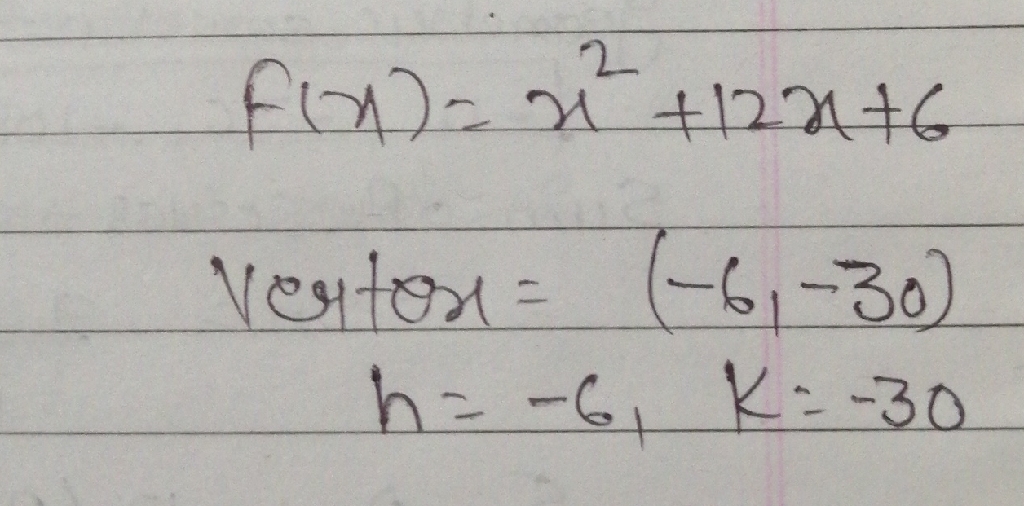 f(x) = x² + 12x + 6
Vertex = (-6, -30)
h = -6, K = -30